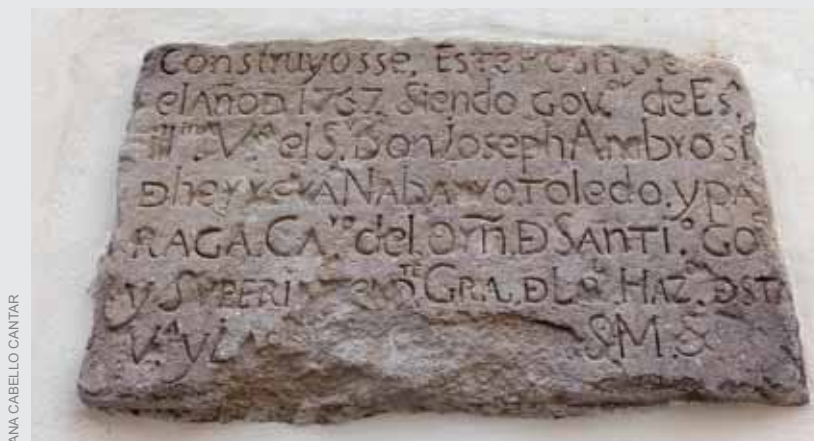 Construyosse, Este
el Año D 1767. Siendo GOV.ᵒʳ de Esᵗ.
V.ᵃ el S.ʳ Don Joseph Ambrosi
NabaRRo. Toledo. y PA
RAGA. CA.ʳᵒ del Orñ. Đ SANTI.º GO
y SUPERINTEND.ᵀᴱ GRAL. Đ LA. HAZ.ᵈᵃ ĐSTA
V.ᴬ y S.M.S
ANA CABELLO CANTAR